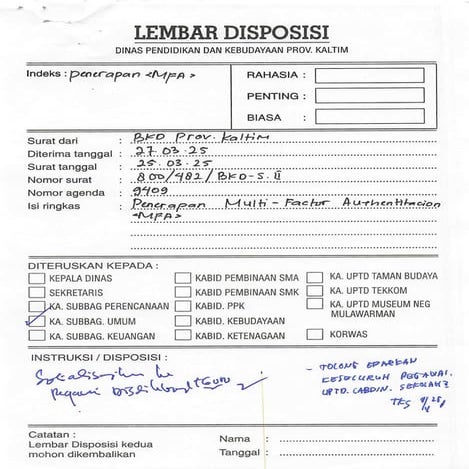 LEMBAR DISPOSISI
DINAS PENDIDIKAN DAN KEBUDAYAAN PROV. KALTIM
Indeks : penerapan <MFA>
RAHASIA :
PENTING :
BIASA :
Surat dari : BKD Prov. Kaltim
Diterima tanggal : 27.03.25
Surat tanggal : 25.03.25
Nomor surat : 800/482/BKD-S.II
Nomor agenda : 9409
Isi ringkas : Penerapan Multi-Factor Authentitacion
<MFA>
DITERUSKAN KEPADA :
KEPALA DINAS
KABID PEMBINAAN SMA
KA. UPTD TAMAN BUDAYA
SEKRETARIS
KABID PEMBINAAN SMK
KA. UPTD TEKKOM
KA. SUBBAG PERENCANAAN
KABID. PPK
KA. UPTD MUSEUM NEG
MULAWARMAN
KA. SUBBAG. UMUM
KABID. KEBUDAYAAN
KA. SUBBAG. KEUANGAN
KABID. KETENAGAAN
KORWAS
INSTRUKSI / DISPOSISI :
Sosialisasikan ke
Pegawai Disdikbud + GURU
- TOLONG EDARKAN
KESELURUH PEGAWAI.
UPTD. CABDIN. SEKOLAH2
TKS
Catatan :
Lembar Disposisi kedua
mohon dikembalikan
Nama :
Tanggal :